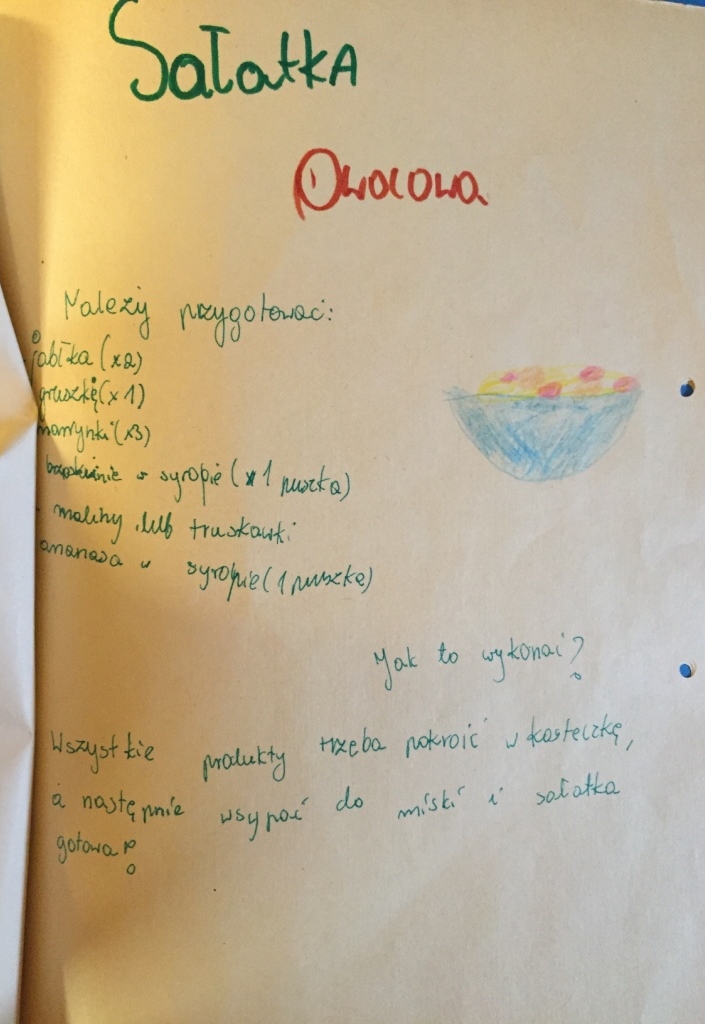 SałatkA
Owocowa
Należy przygotować:
jabłka (x2)
gruszkę (x1)
mandarynki (x3)
brzoskwinie w syropie (x1 puszka)
- maliny lub truskawki
ananasa w syropie (1 puszka)
Jak to wykonać?
Wszystkie produkty trzeba pokroić w kosteczkę,
a następnie wsypać do miski i sałatka
gotowa!